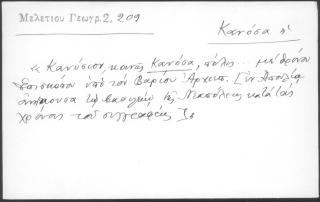 Μελετίου Γεωγρ. 2, 209
Κανόσα ἡ
« Κανύσιον, κοινῶς Κανόσα, πόλις... μὲ θρόνον
Ἐπισκόπου ὑπὸ τὸν Βαρίου Ἀρχιεπ. [ἐν Ἀπουλίᾳ,
ἀνήκουσα τῷ βασιλείῳ τῆς Νεαπόλεως κατὰ τοὺς
χρόνους τοῦ συγγραφέως]»